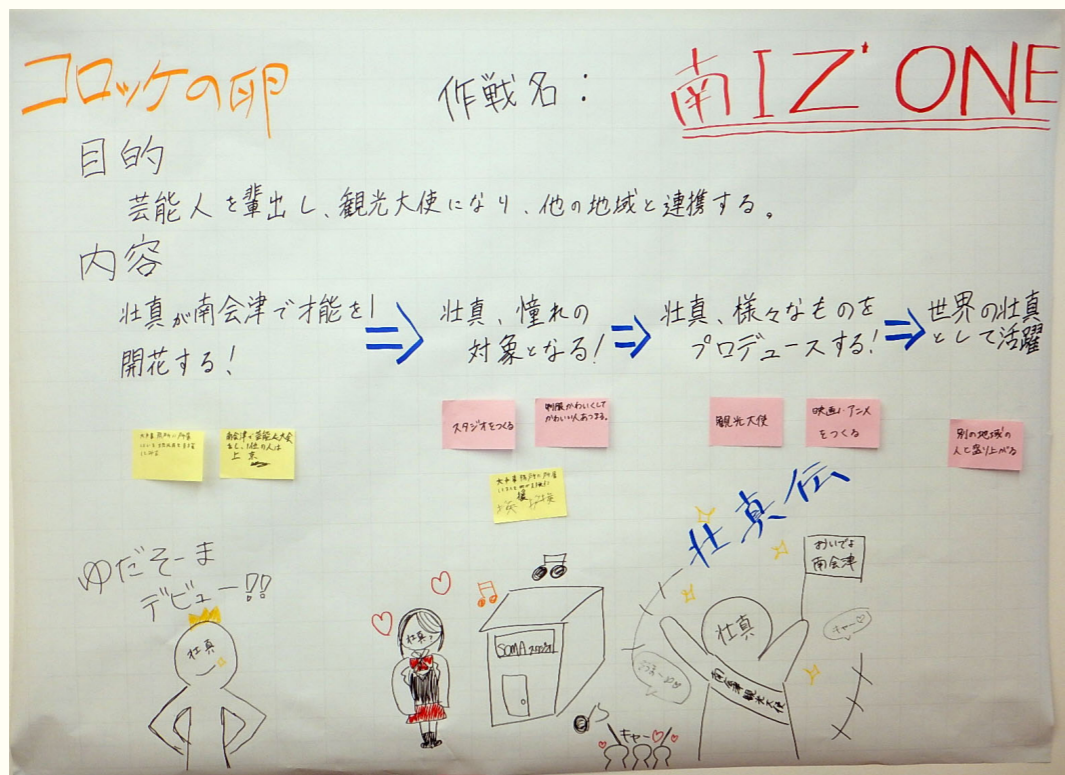 コロッケの卵
作戦名：
南IZ*ONE
目的
芸能人を輩出し、観光大使になり、他の地域と連携する。
内容
壮真が南会津で才能を
開花する！
壮真、憧れの
対象となる！
壮真、様々なものを
プロデュースする！
世界の壮真
として活躍
南会津で芸能人大使
上京
スタジオをつくる
制服かわいくして
かわいい人あつまる。
観光大使
映画・アニメ
をつくる
別の地域の
人と盛り上がる
壮真伝
ゆだそーま
デビュー!!
壮真
壮真
SOMAスタジオ
おいでよ
南会津
壮真
キャー
南会津観光大使
キャー